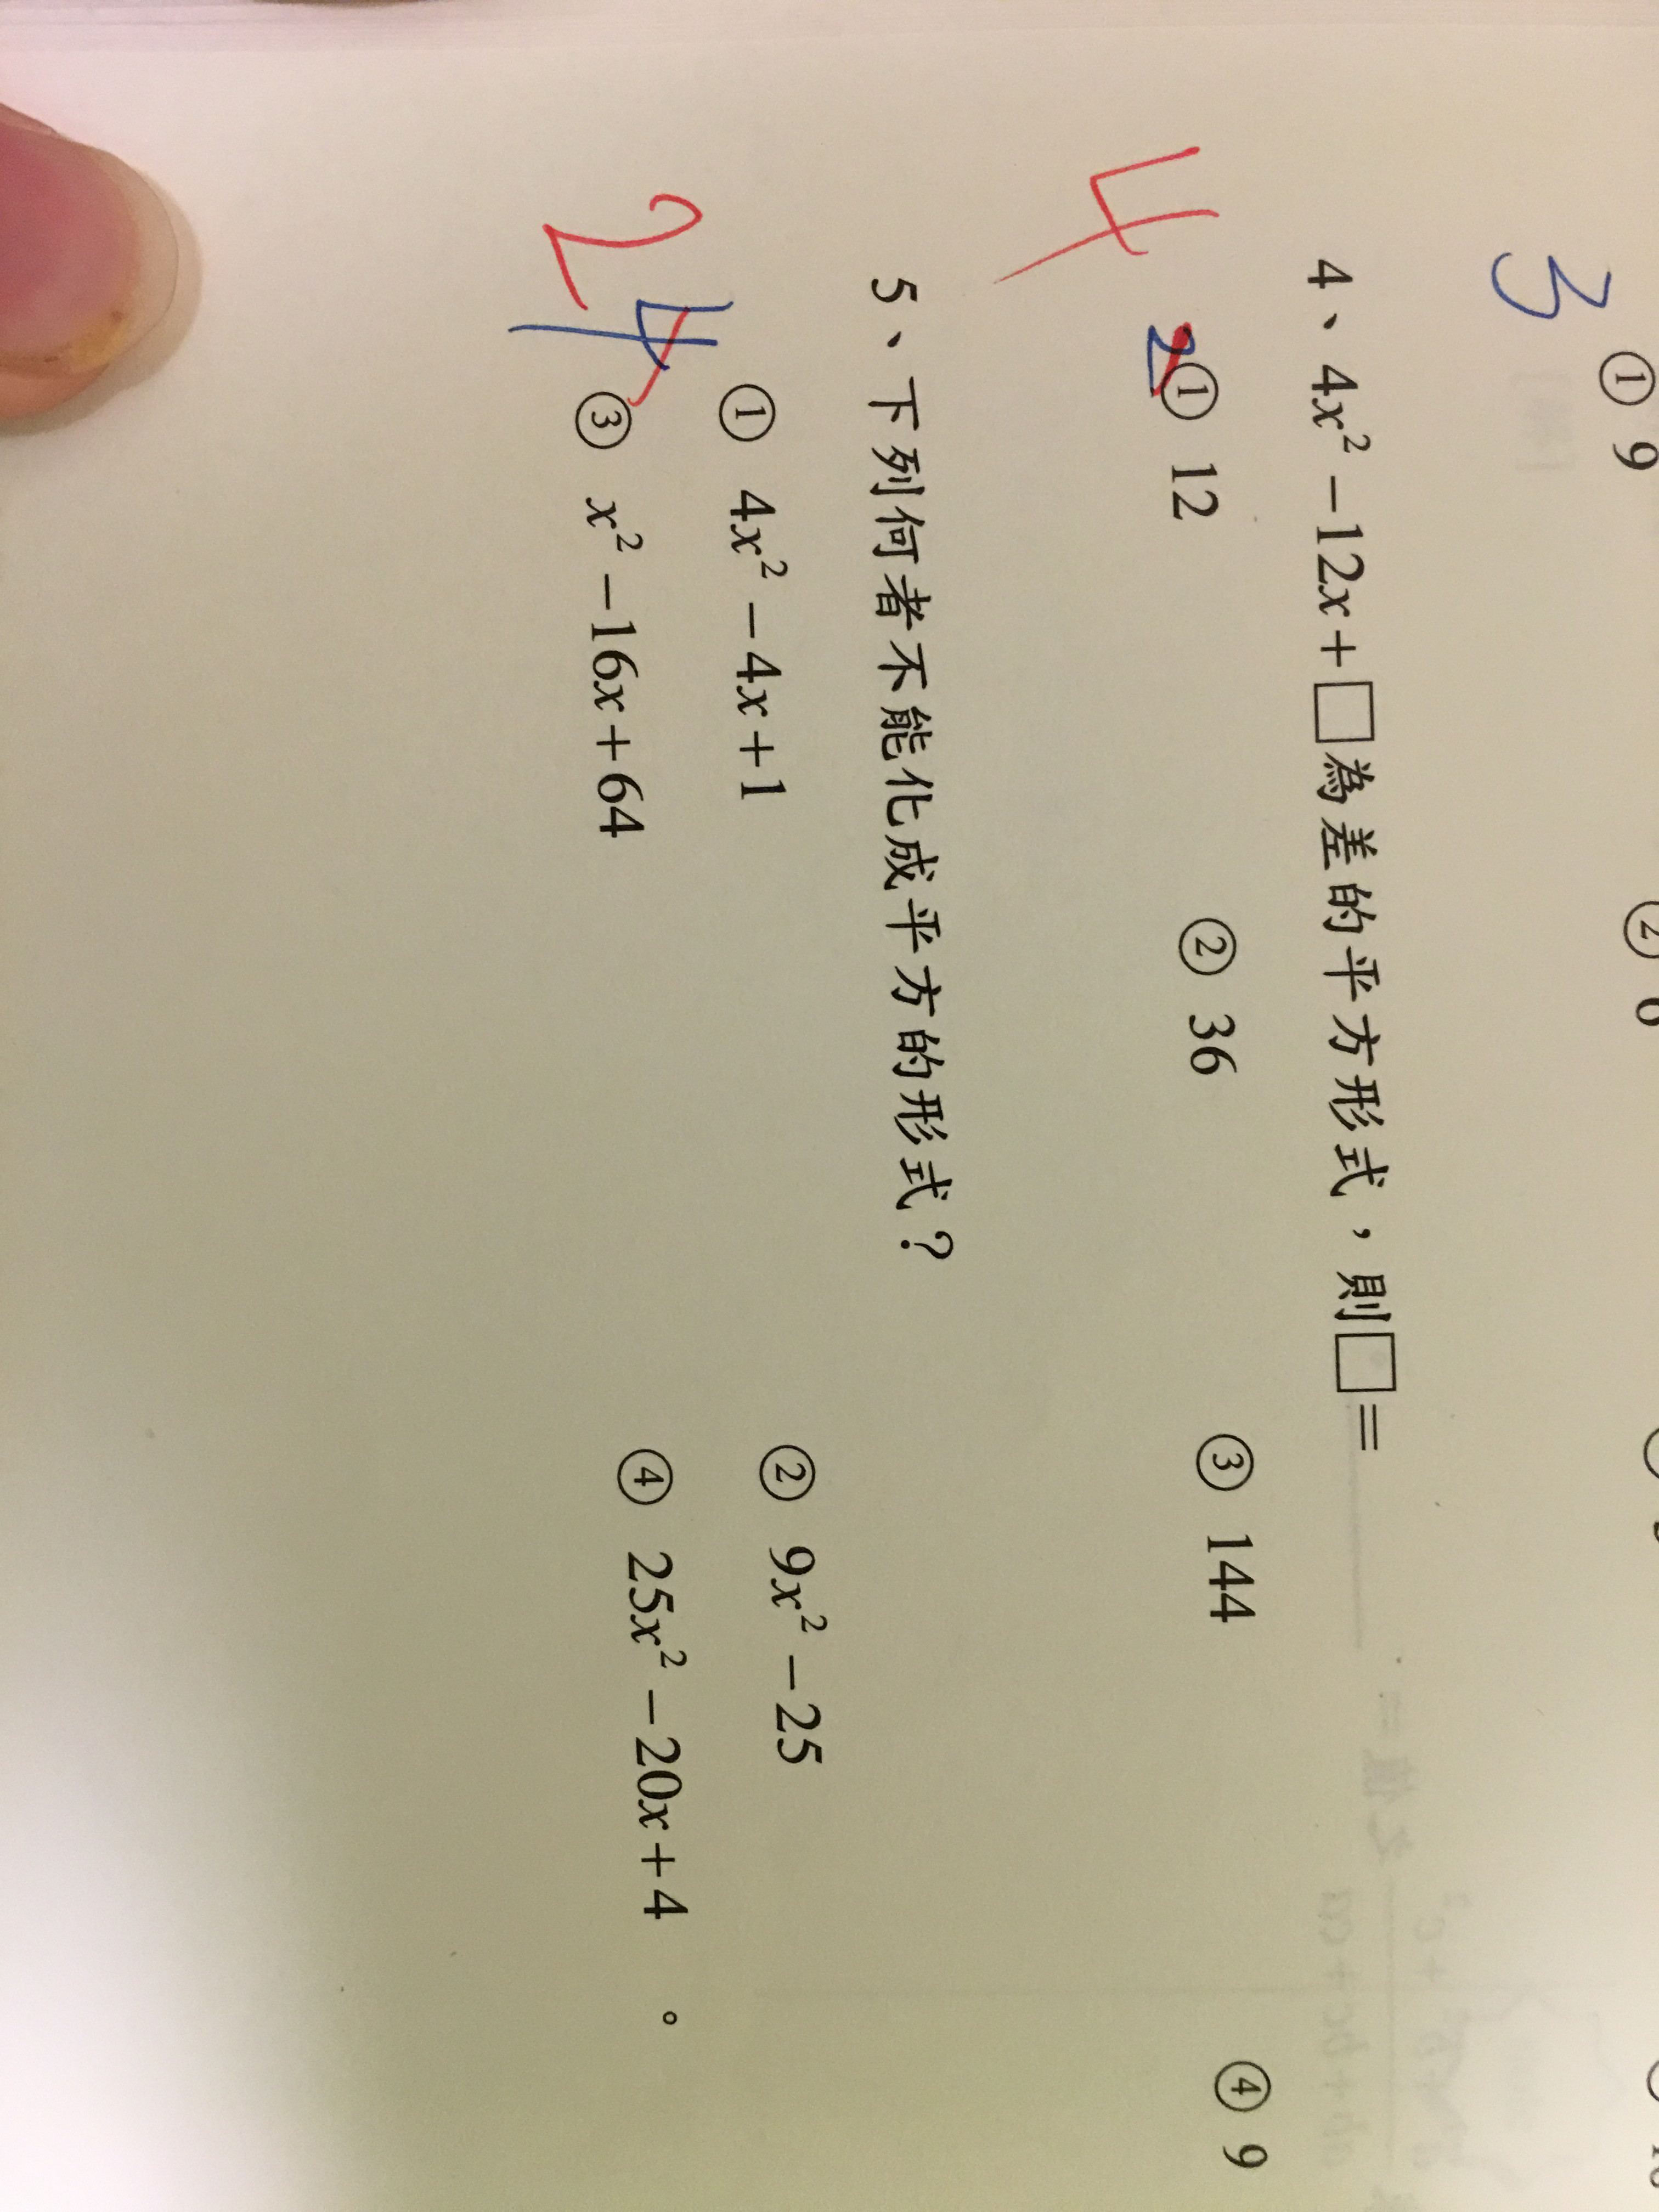 3 ① 9 ② 6
4、4x² -12x+□為差的平方形式，則□=
4 2 ① 12 ② 36 ③ 144 ④ 9
5、下列何者不能化成平方的形式？
① 4x² -4x+1 ② 9x² -25
2 4 ③ x² -16x+64 ④ 25x² -20x+4 。